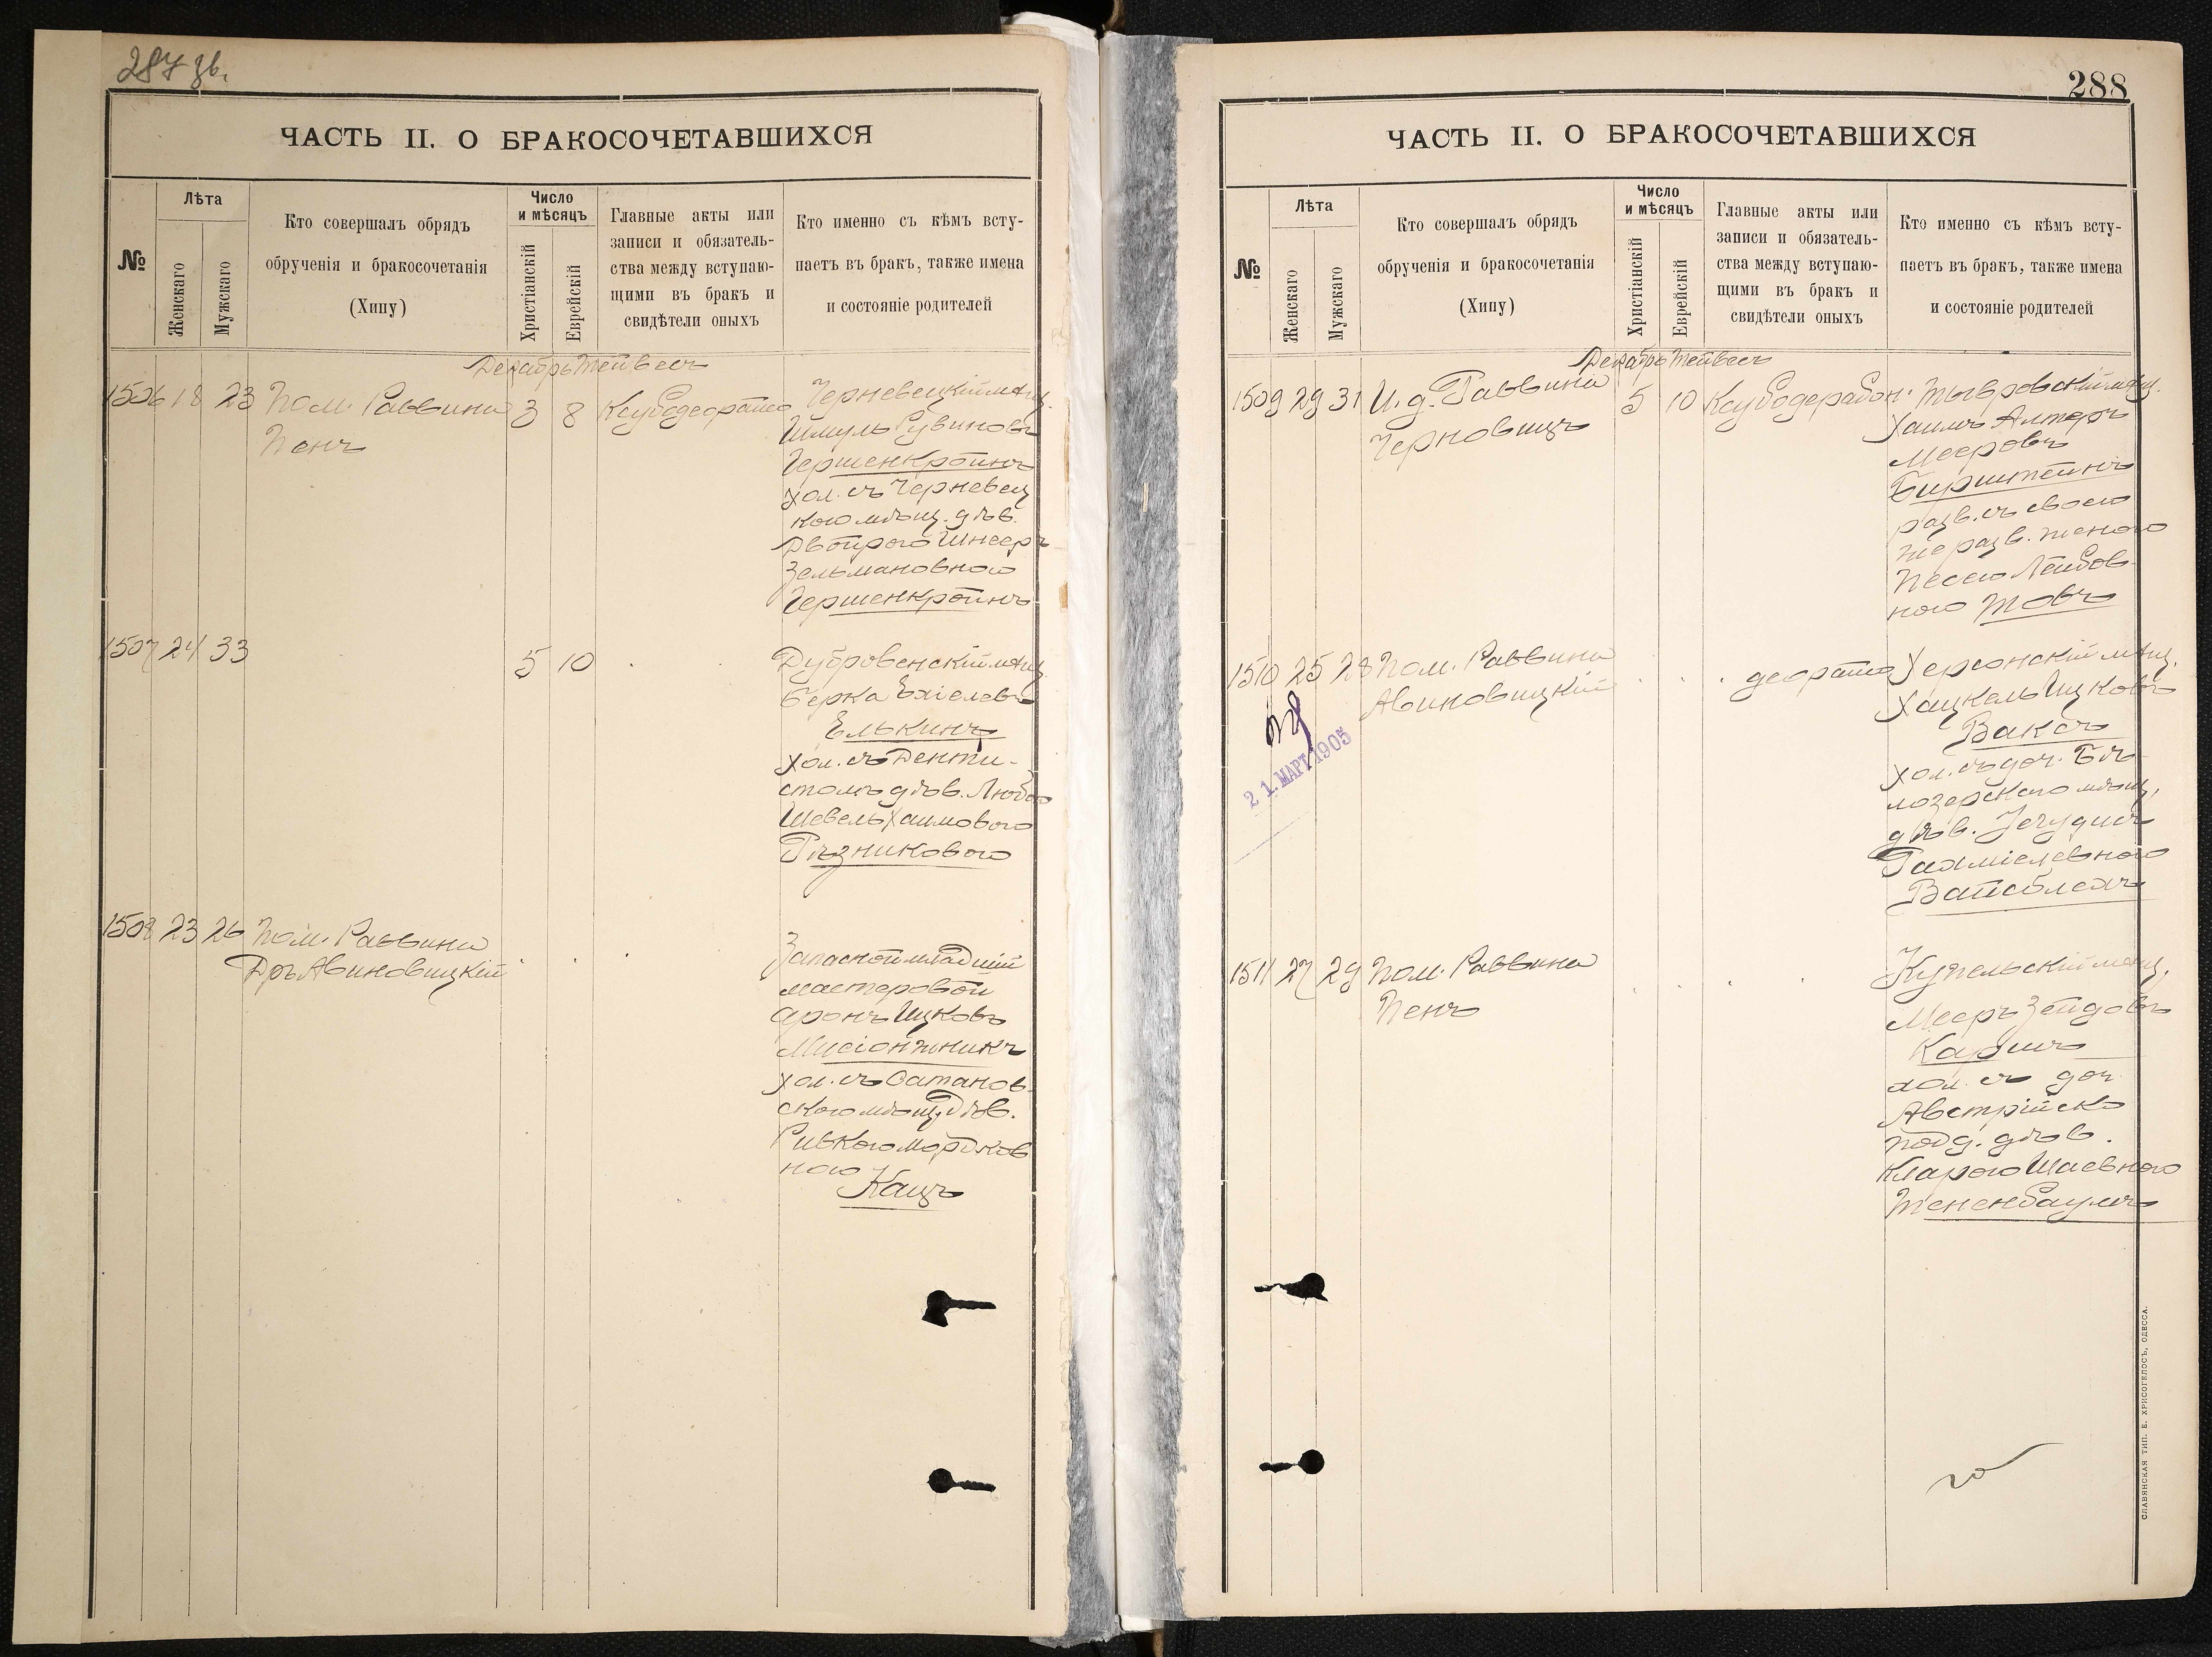 287 зв.
ЧАСТЬ II. О БРАКОСОЧЕТАВШИХСЯ
№
Лѣта
Женскаго
Мужскаго
Кто совершалъ обрядъ
обрученія и бракосочетанія
(Хипу)
Число
и мѣсяцъ
Христіанскій
Еврейскій
Главные акты или
записи и обязатель-
ства между вступаю-
щими въ бракъ и
свидѣтели оныхъ
Кто именно съ кѣмъ всту-
паетъ въ бракъ, также имена
и состояніе родителей
Декабрь Тейвесъ
1506 18 23 Пом. Раввина
Пенъ
3 8
Черневецкій мѣщ.
Шмуль Рувиновъ
Гершенкройнъ
хол. съ Черневец
кою мѣщ. дѣв.
Двойрою Шнеер
Зельмановною
Гершенкройнъ
1507 24 33
5 10
Дубровенскій мѣщ.
Берка Ехіелевъ
Елькинъ
хол. съ Денти-
стомъ дѣв. Любою
Шевель Хаимовою
Рѣзниковою
1508 23 26 Пом. Раввина
Дръ Авиновицкій
Запасной младшій
мастеровой
Аронъ Ицковъ
Мисіонжникъ
хол. съ Сатанов-
скою мѣщ. дѣв.
Ривкою Мордков
ною
Кацъ
288
ЧАСТЬ II. О БРАКОСОЧЕТАВШИХСЯ
№
Лѣта
Женскаго
Мужскаго
Кто совершалъ обрядъ
обрученія и бракосочетанія
(Хипу)
Число
и мѣсяцъ
Христіанскій
Еврейскій
Главные акты или
записи и обязатель-
ства между вступаю-
щими въ бракъ и
свидѣтели оныхъ
Кто именно съ кѣмъ всту-
паетъ въ бракъ, также имена
и состояніе родителей
Декабрь Тейвесъ
1509 29 31 И. д. Раввина
Черновицъ
5 10
Тывровскій мѣщ.
Хаимъ Алтеръ
Мееровъ
Бирштейнъ
разв. съ своею
же разв. женою
Песею Лейбов
ною Товъ
1510 25 28 Пом. Раввина
Авиновицкій
21. МАРТ 1905
Херсонскій мѣщ.
Хацкель Ицковъ
Ваксъ
хол. съ доч. Бѣ-
лозерскаго мѣщ.
дѣв. Іегудисъ
Рахміелевною
Вайсблехъ
1511 27 29 Пом. Раввина
Пенъ
Купельскій мѣщ.
Мееръ Зейдовъ
Каушъ
хол. съ доч.
Австрійско
подд. дѣв.
Кларою Шаевною
Тененбаумъ
СЛАВЯНСКАЯ ТИП. Е. ХРИСОГЕЛОСЪ, ОДЕССА.